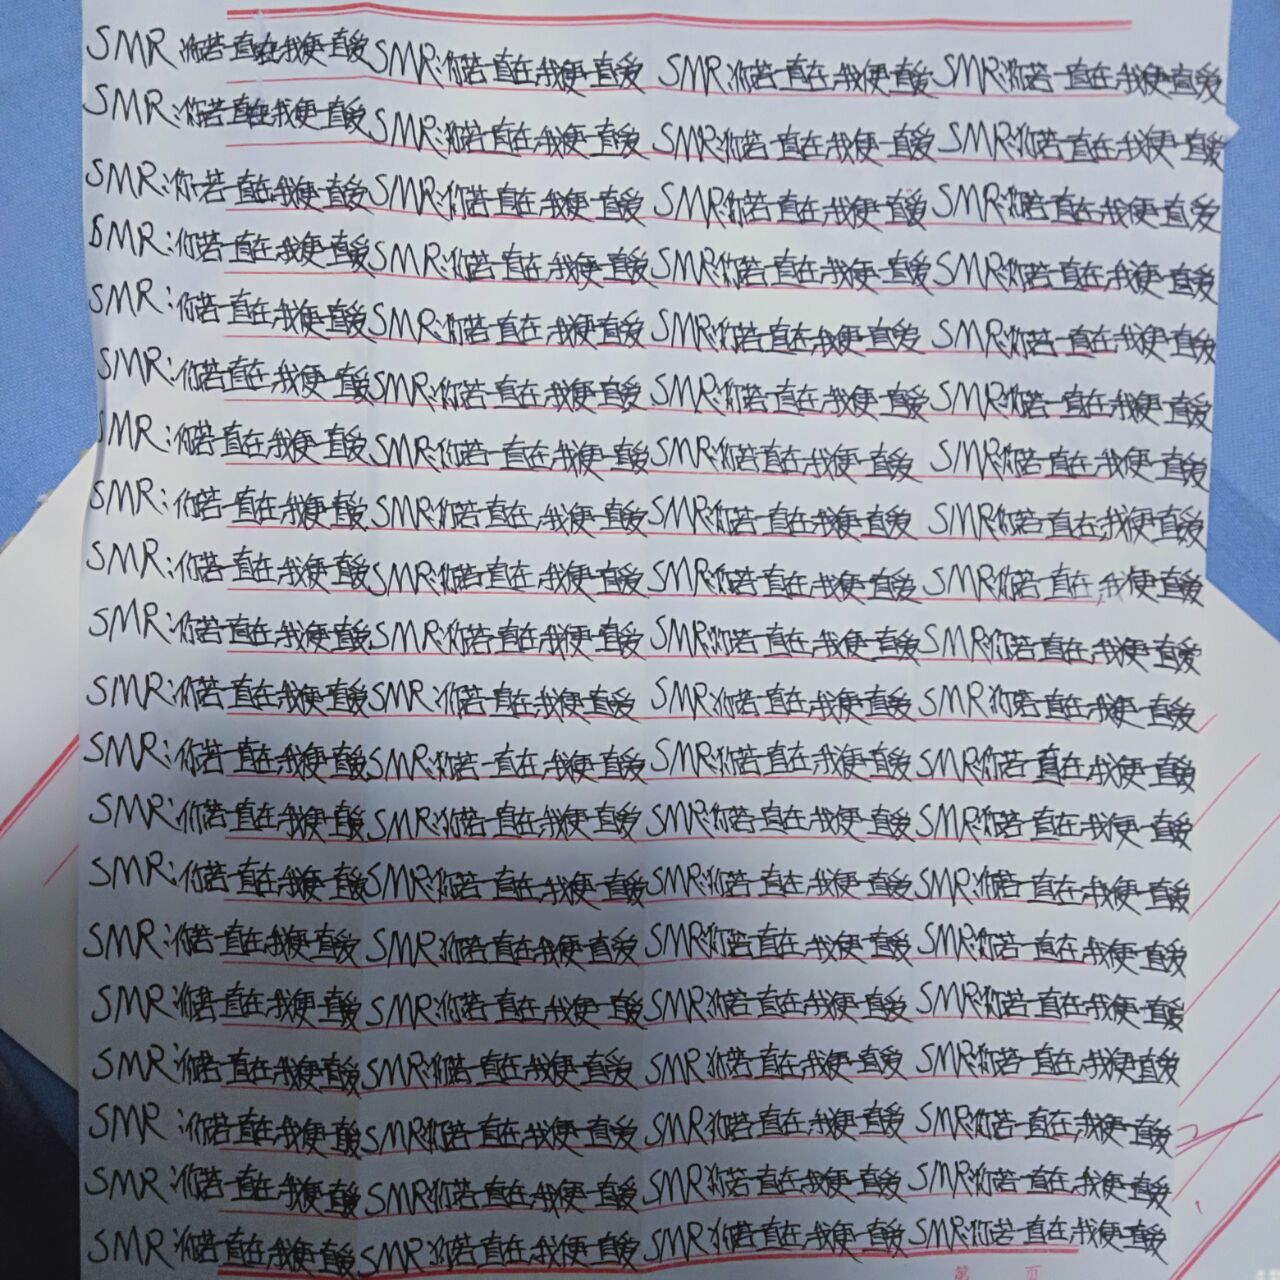 SMR:你若一直在我便一直爱 SMR:你若一直在我便一直爱 SMR:你若一直在我便一直爱 SMR:你若一直在我便一直爱
SMR:你若一直在我便一直爱 SMR:你若一直在我便一直爱 SMR:你若一直在我便一直爱 SMR:你若一直在我便一直爱
SMR:你若一直在我便一直爱 SMR:你若一直在我便一直爱 SMR:你若一直在我便一直爱 SMR:你若一直在我便一直爱
SMR:你若一直在我便一直爱 SMR:你若一直在我便一直爱 SMR:你若一直在我便一直爱 SMR:你若一直在我便一直爱
SMR:你若一直在我便一直爱 SMR:你若一直在我便一直爱 SMR:你若一直在我便一直爱 SMR:你若一直在我便一直爱
SMR:你若一直在我便一直爱 SMR:你若一直在我便一直爱 SMR:你若一直在我便一直爱 SMR:你若一直在我便一直爱
SMR:你若一直在我便一直爱 SMR:你若一直在我便一直爱 SMR:你若一直在我便一直爱 SMR:你若一直在我便一直爱
SMR:你若一直在我便一直爱 SMR:你若一直在我便一直爱 SMR:你若一直在我便一直爱 SMR:你若一直在我便一直爱
SMR:你若一直在我便一直爱 SMR:你若一直在我便一直爱 SMR:你若一直在我便一直爱 SMR:你若一直在我便一直爱
SMR:你若一直在我便一直爱 SMR:你若一直在我便一直爱 SMR:你若一直在我便一直爱 SMR:你若一直在我便一直爱
SMR:你若一直在我便一直爱 SMR:你若一直在我便一直爱 SMR:你若一直在我便一直爱 SMR:你若一直在我便一直爱
SMR:你若一直在我便一直爱 SMR:你若一直在我便一直爱 SMR:你若一直在我便一直爱 SMR:你若一直在我便一直爱
SMR:你若一直在我便一直爱 SMR:你若一直在我便一直爱 SMR:你若一直在我便一直爱 SMR:你若一直在我便一直爱
SMR:你若一直在我便一直爱 SMR:你若一直在我便一直爱 SMR:你若一直在我便一直爱 SMR:你若一直在我便一直爱
SMR:你若一直在我便一直爱 SMR:你若一直在我便一直爱 SMR:你若一直在我便一直爱 SMR:你若一直在我便一直爱
SMR:你若一直在我便一直爱 SMR:你若一直在我便一直爱 SMR:你若一直在我便一直爱 SMR:你若一直在我便一直爱
SMR:你若一直在我便一直爱 SMR:你若一直在我便一直爱 SMR:你若一直在我便一直爱 SMR:你若一直在我便一直爱
SMR:你若一直在我便一直爱 SMR:你若一直在我便一直爱 SMR:你若一直在我便一直爱 SMR:你若一直在我便一直爱
SMR:你若一直在我便一直爱 SMR:你若一直在我便一直爱 SMR:你若一直在我便一直爱 SMR:你若一直在我便一直爱
SMR:你若一直在我便一直爱 SMR:你若一直在我便一直爱 SMR:你若一直在我便一直爱 SMR:你若一直在我便一直爱
第 页